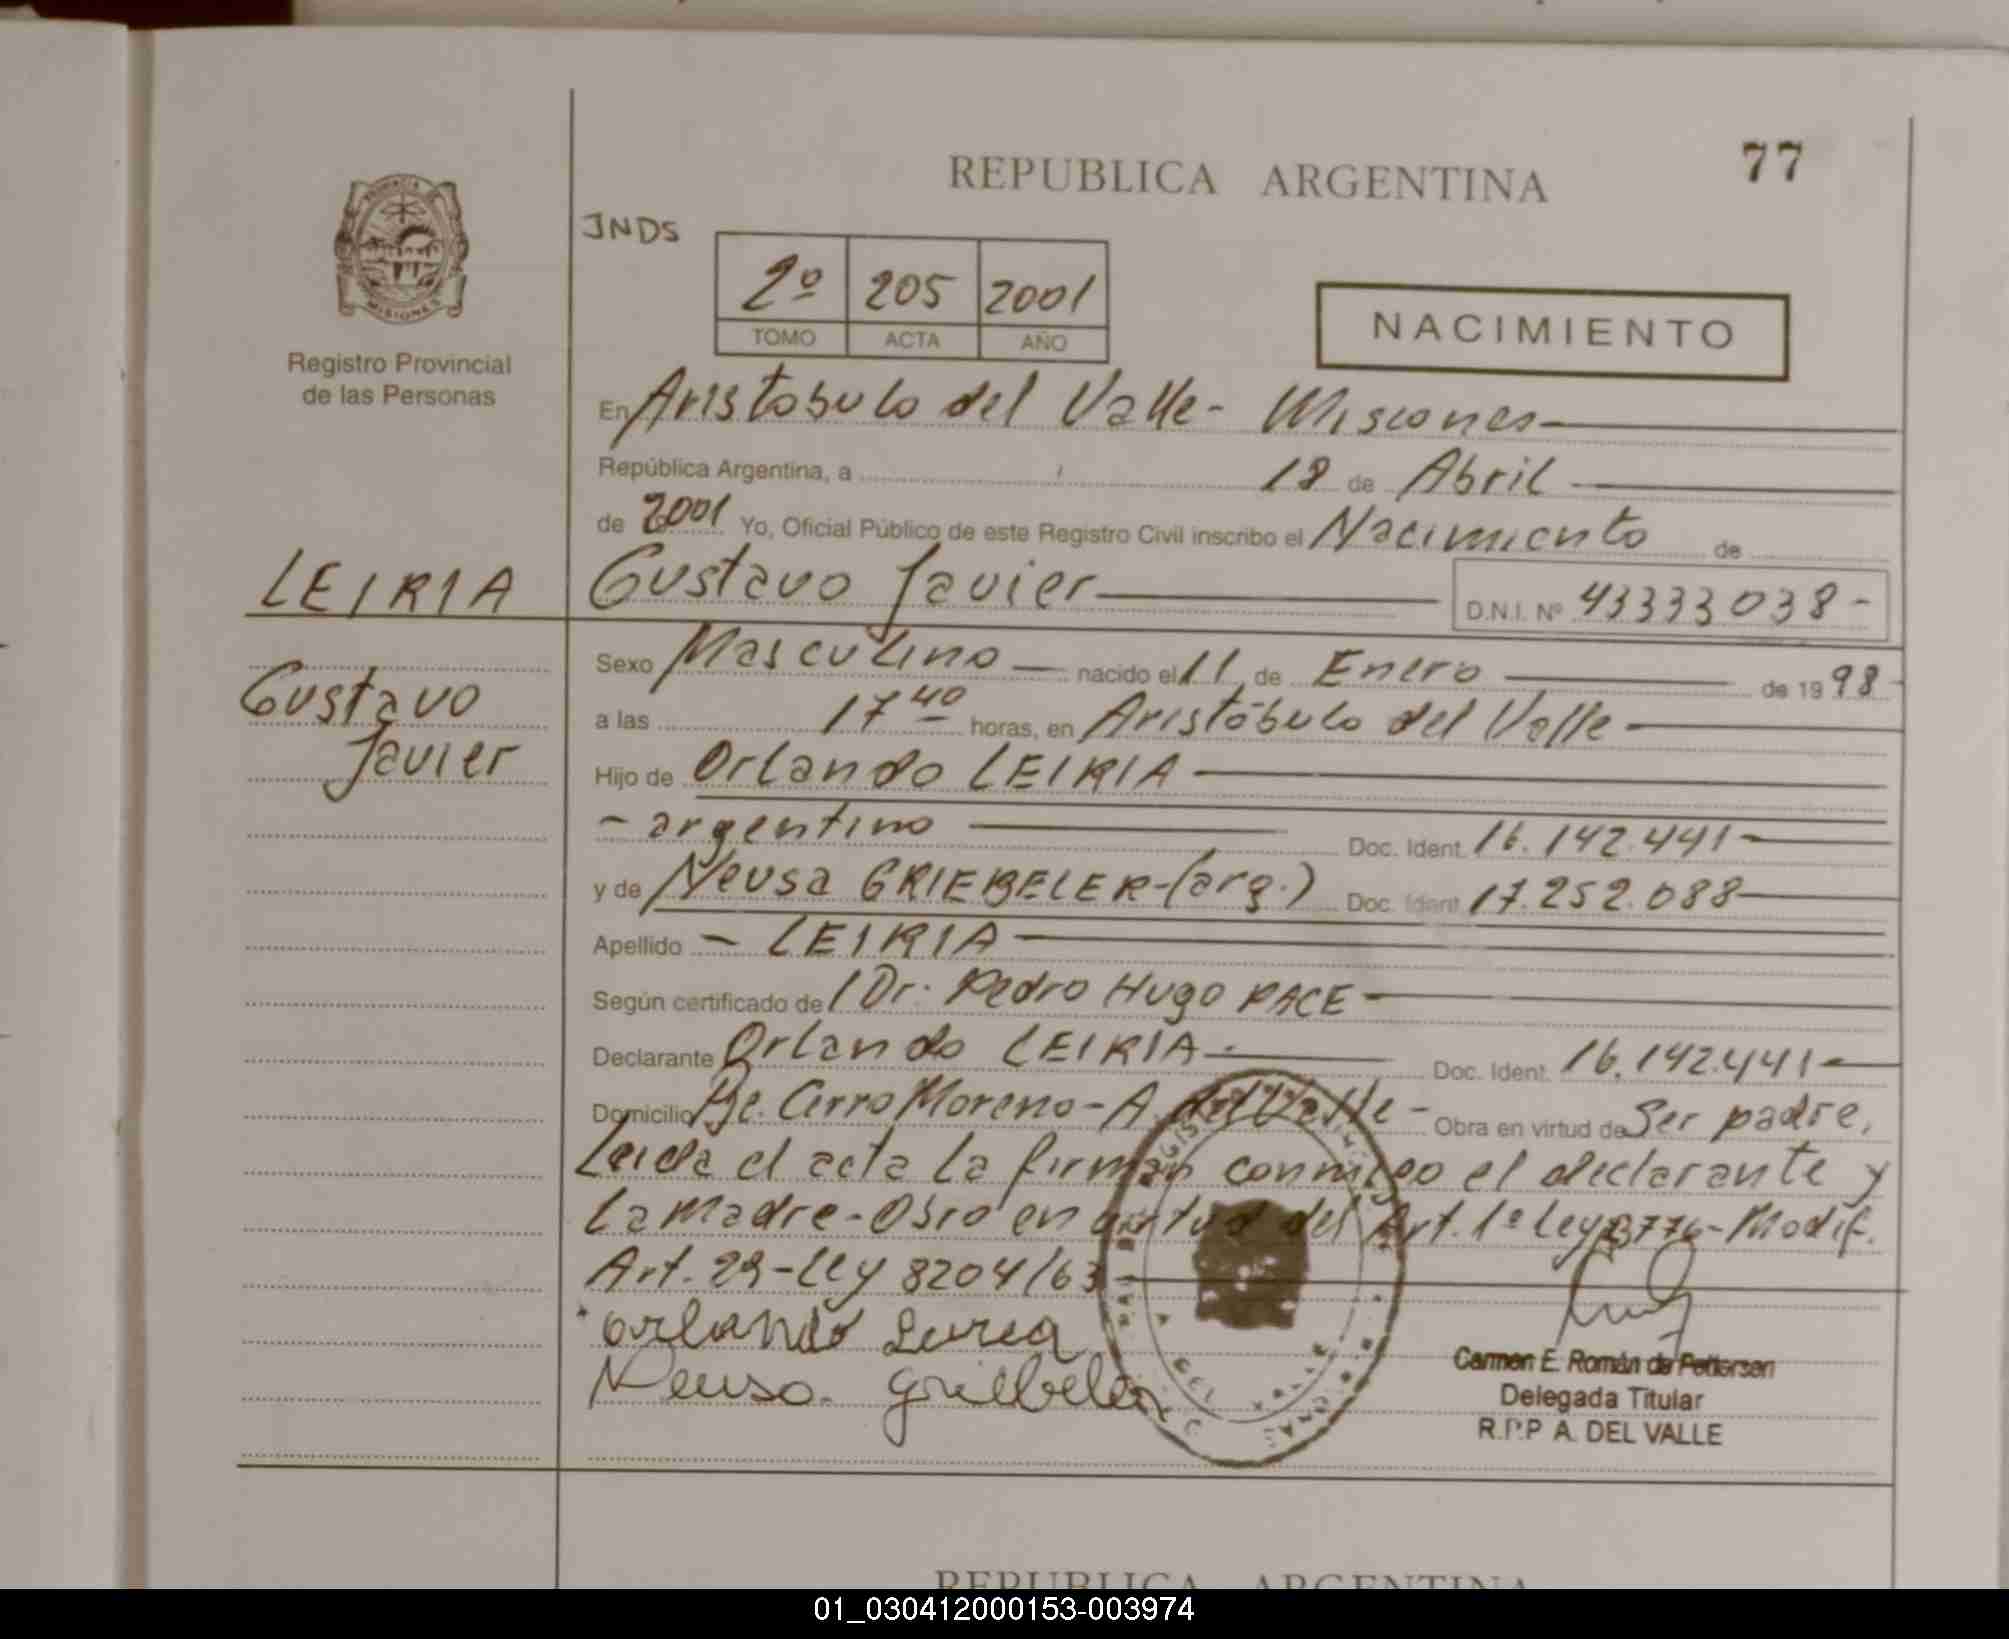 77
REPUBLICA ARGENTINA
INDS
PROVINCIA
MISIONES
Registro Provincial
de las Personas
2º 205 2001
TOMO ACTA AÑO
NACIMIENTO
En Aristobulo del Valle - Misiones
República Argentina, a 18 de Abril
de 2001 Yo, Oficial Público de este Registro Civil inscribo el Nacimiento de
LEIRIA Gustavo Javier D.N.I. Nº 43333038-
Gustavo
Javier
Sexo Masculino nacido el 11 de Enero de 1998
a las 17 40 horas, en Aristóbulo del Valle -
Hijo de Orlando LEIRIA
- argentino Doc. Ident. 16.142.441-
y de Neusa GRIEBELER-(arg.) Doc. Ident. 17.252.088
Apellido - LEIRIA
Según certificado de / Dr. Pedro Hugo PACE-
Declarante Orlando LEIRIA - Doc. Ident. 16.142.441-
Domicilio Bje. Cerro Moreno - A. del Valle - Obra en virtud de Ser padre,
Leida el acta la firman conmigo el declarante y
la madre - Obro en virtud del Art. 1º Ley 23776 - Modif.
Art. 29 - Ley 8204/63
Orlando Leiria
Neusa. Griebeler
Carmen E. Román de Pettersen
Delegada Titular
R.P.P A. DEL VALLE
REPUBLICA ARGENTINA
01_030412000153-003974